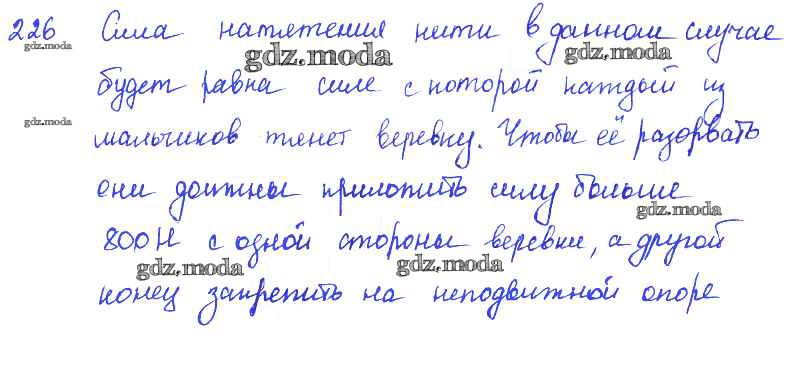 226 Сила натяжения нити в данном случае
gdz.moda gdz.moda gdz.moda
будет равна силе с которой каждый из
gdz.moda
мальчиков тянет веревку. Чтобы её разорвать
они должны приложить силу больше
gdz.moda
800Н с одной стороны веревки, а другой
gdz.moda gdz.moda
конец закрепить на неподвижной опоре